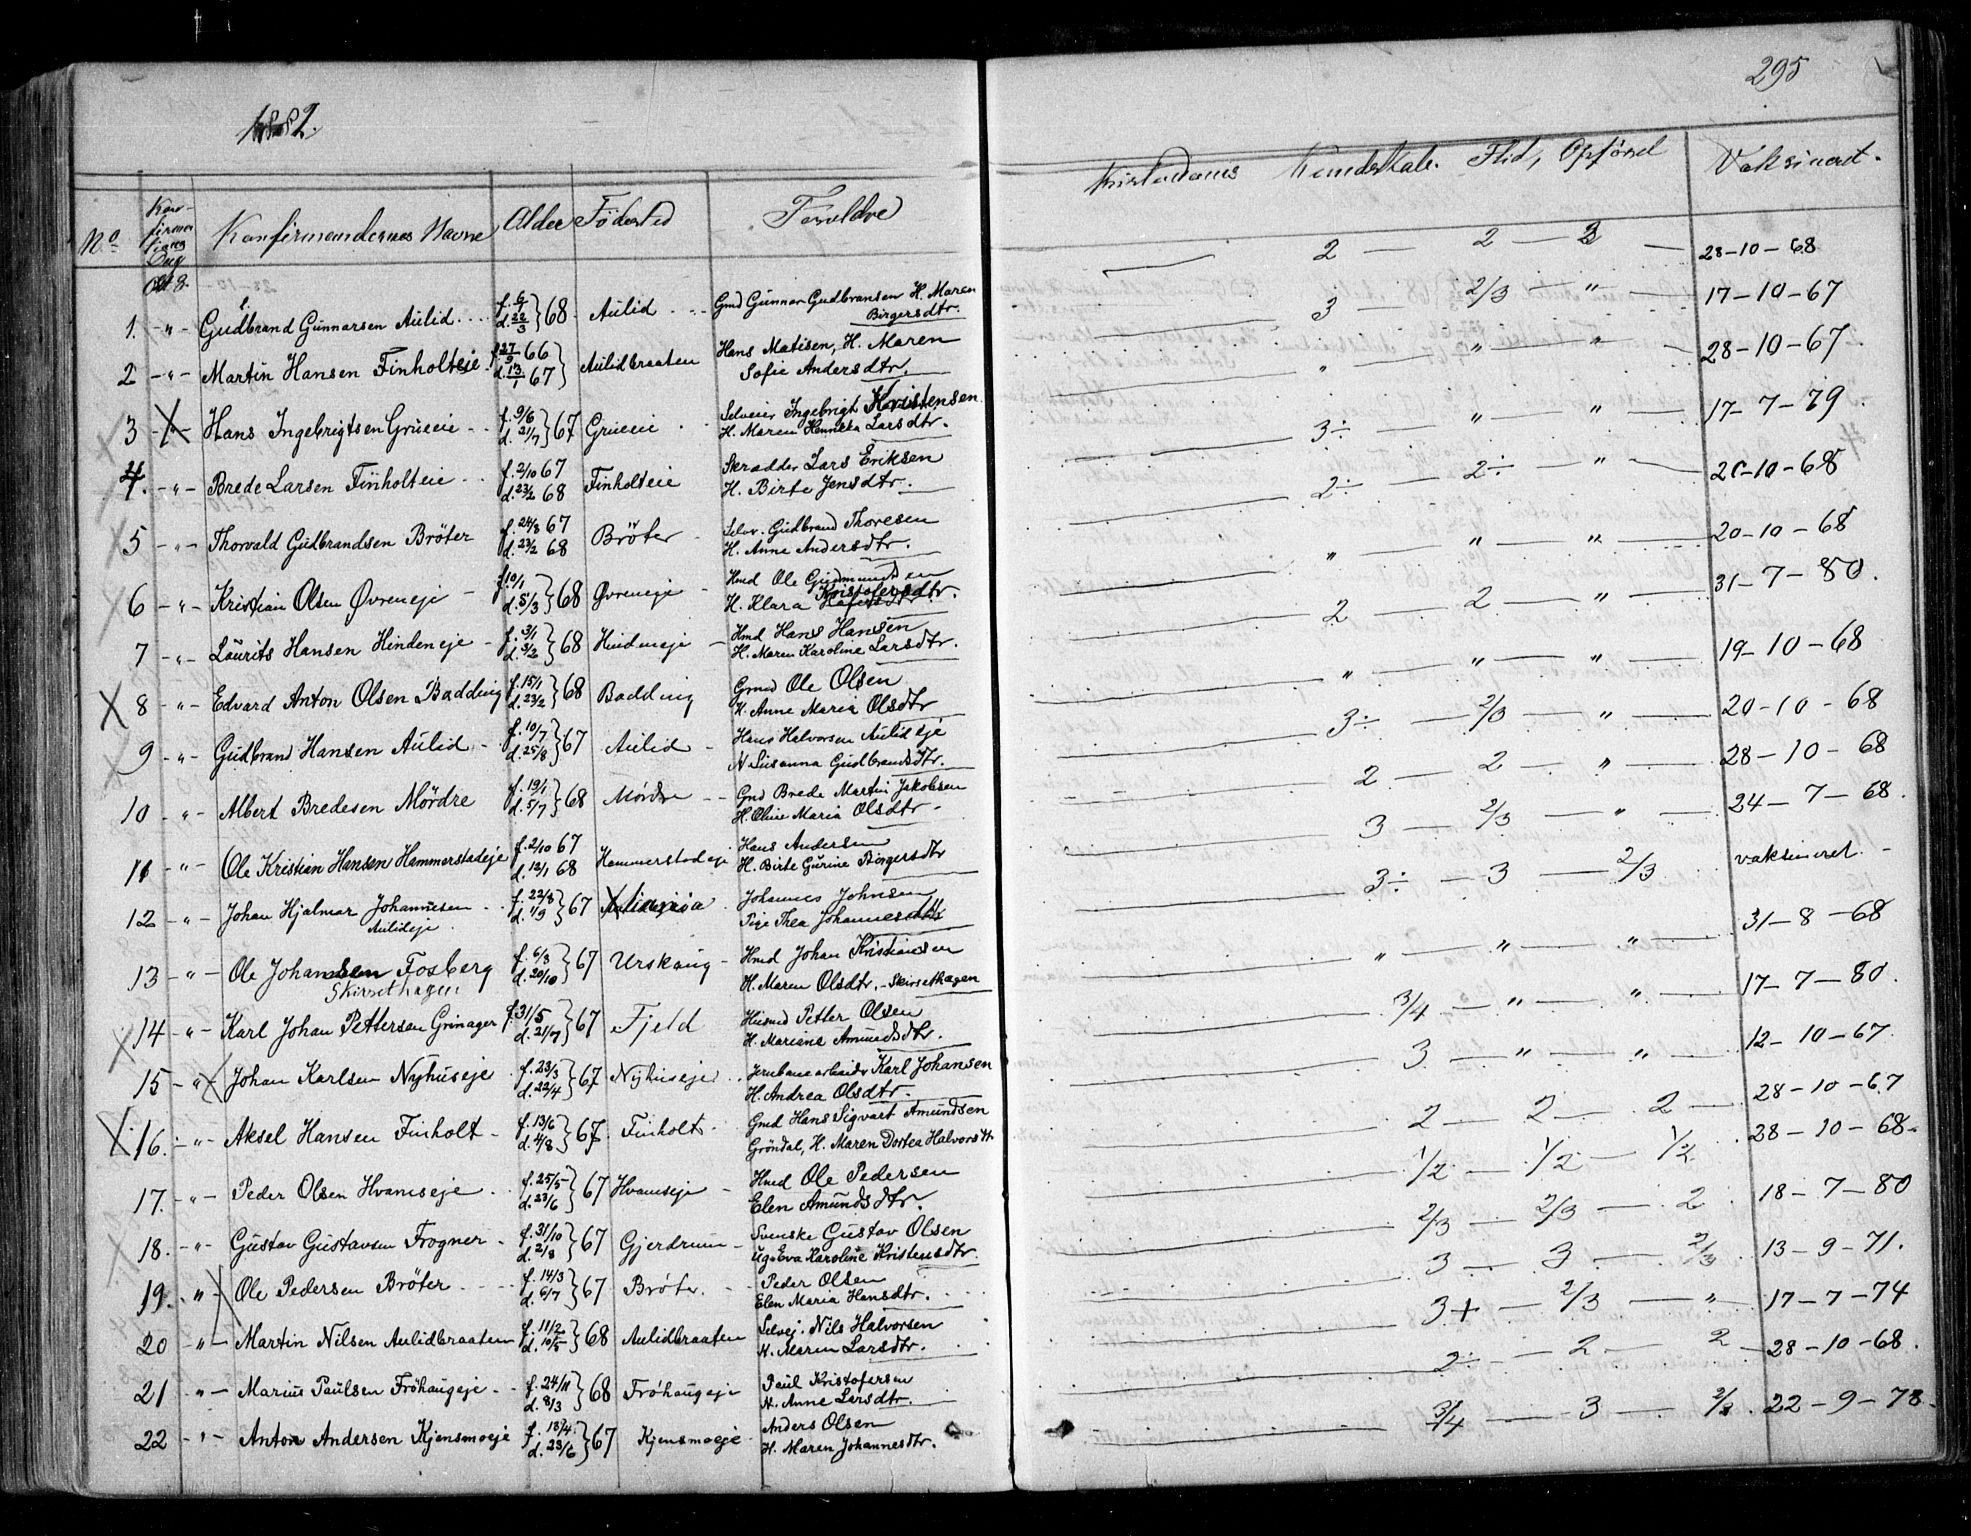 1882.
295
No
Kon-
firma-
tions
Dag
Konfirmandernes Navne
Alder
Födested
Foreldre
Kristendoms Kundskab. Flid, Opförsel
Vaksineret.
Okt 8.
1. -"- Gudbrand Gunnarsen Aulid f. 6/1 d. 22/3 } 68 Aulid Gmd Gunnar Gudbransen H. Maren
Birgersdtr. 2 — 2 — 2 — 28-10-68
2 -"- Martin Hansen Finholteie f. 27/9 66 d. 13/1 67 } Aulidbraaten Hans Matisen, H. Maren
Sofie Andersdtr. 3 — 2/3 — " — 17-10-67
3 -"- Hans Ingebrigtsen Grueeie f. 9/6 d. 21/7 } 67 Grueeie Selveier Ingebrigt Kristensen
H. Maren Henrikka Larsdtr. " — " — " — 28-10-67.
4. -"- Brede Larsen Finholteie f. 2/10 67 d. 23/2 68 Finholteie Skrædder Lars Eriksen
H. Birte Jensdtr. 3÷ — " — " — 17-7-79.
5 -"- Thorvald Gudbrandsen Bröter f. 24/8 67 d. 23/2 68 Bröter Selv. Gudbrand Thoresen
H. Anne Andersdtr. 2÷ — 2÷ — " — 20-10-68
6 -"- Kristian Olsen Øvreneje f. 10/1 d. 5/3 } 68 Øvreneje Hmd Ole Gudmundsen
H. Klara Kristofersdtr. " — " — " — 20-10-68
7 -"- Laurits Hansen Hindeneje f. 3/1 d. 3/2 } 68 Hindeneje Hmd Hans Hansen
H. Maren Karoline Larsdtr. 2 — 2 — " — 31-7-80.
8 -"- Edvard Anton Olsen Badding f. 15/1 d. 23/2 } 68 Badding Gmd Ole Olsen
H. Anne Maria Olsdtr " — " — " — 19-10-68
9 -"- Gudbrand Hansen Aulid f. 10/7 d. 25/8 } 67 Aulid Hans Halvorsen Aulideje
H Susanna Gudbrandsdtr. 3÷ — 2/3 — " — 20-10-68
10 -"- Albert Bredesen Mördre f. 19/1 d. 5/7 } 68 Mördre Gmd Brede Martin Jakobsen
H. Oline Maria Olsdtr 2 — 2 — " — 28-10-68
11 -"- Ole Kristian Hansen Hammerstadeje f. 2/10 67 d. 12/1 68 Hammerstadeje Hans Andersen
H. Birte Gurine Birgersdtr 3 — 2/3 — " — 24-7-68.
12 -"- Johan Hjalmar Johannesen
Aulideje. f. 22/8 d. 1/9 } 67 Johannes Johnsen
Pige Thea Johannesdtr 3÷ — 3 — 2/3 vaksineret.
13 -"- Ole Johansen Fosberg
Skirsethagen f. 6/3 d. 20/10 } 67 Urskoug Hmd Johan Kristiansen
H. Maren Olsdtr. - Skirsethagen " — " — " — 31-8-68
14 -"- Karl Johan Pettersen Grinager f. 31/5 d. 21/7 } 67 Fjeld Husmd Petter Olsen
H. Mariane Amundsdtr. 3/4 — " — " — 17-7-80.
15 -"- Johan Karlsen Nyhuseje f. 23/3 d. 22/4 } 67 Nyhuseje Jernbanearbeider Karl Johansen
H. Andrea Olsdtr. 3 — " — " — 12-10-67.
16. -"- Aksel Hansen Finholt f. 13/6 d. 4/8 } 67. Finholt Gmd Hans Sigvart Amundsen
Gröndal, H. Maren Dortea Halvorsdtr 2 — 2 — 2 — 28-10-67
17. -"- Peder Olsen Hvamseje f. 25/5 d. 23/6 } 67 Hvamseje Hmd Ole Pedersen
Elen Amundsdtr. 1/2 — 1/2 — 1/2 28-10-68.
18. -"- Gustav Gustavsen Frogner f. 31/10 d. 2/8 } 67 Gjerdrum Svenske Gustav Olsen
Ug. Eva Karoline Kristensdtr 2/3 — 2/3 — 2 18-7-80
19. -"- Ole Pedersen Bröter f. 14/3 d. 6/7 } 67 Bröter. Peder Olsen
Elen Maria Hansdtr. 3 — 3 — 2/3 13-9-71.
20 -"- Martin Nilsen Aulidbraaten f. 11/2 d. 10/5 } 68 Aulidbraaten Selvej. Nils Halvorsen
H. Maren Larsdtr. 3+ — 2/3 — " 17-7-74
21 -"- Marius Paulsen Fröhaugeje f. 24/11 d. 8/3 } 68 Fröhaugeje Paul Kristofersen
H. Anne Larsdtr. 2÷ — 2 — 2 28-10-68.
22 -"- Anton Andersen Kjensmoeje f. 18/4 d. 23/6 } 67 Kjensmoeje Anders Olsen
H. Maren Johannesdtr. 3/4 — 3 — 2/3. 22-9-78.